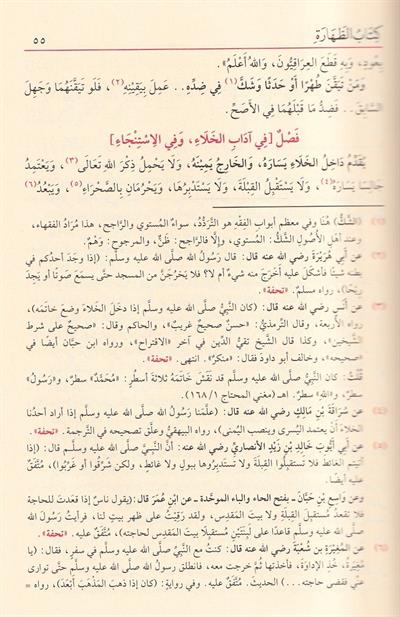 كِتَابُ الطَّهَارَةِ ٥٥
بِعُودٍ، وَبِهِ قَطَعَ العِرَاقِيُّونَ، وَاللهُ أَعْلَمُ».
وَمَنْ تَيَقَّنَ طُهْرًا أَوْ حَدَثًا وَشَكَّ(١) فِي ضِدِّهِ.. عَمِلَ بِيَقِينِهِ(٢)، فَلَوْ تَيَقَّنَهُمَا وَجَهِلَ
السَّابِقَ.. فَضِدُّ مَا قَبْلَهُمَا فِي الأَصَحِّ.
فَصْلٌ [فِي آدَابِ الخَلَاءِ، وَفِي الِاسْتِنْجَاءِ]
يُقَدِّمُ دَاخِلُ الخَلَاءِ يَسَارَهُ، وَالخَارِجُ يَمِينَهُ، وَلَا يَحْمِلُ ذِكْرَ اللهِ تَعَالَى(٣)، وَيَعْتَمِدُ
جَالِسًا يَسَارَهُ(٤)، وَلَا يَسْتَقْبِلُ القِبْلَةَ، وَلَا يَسْتَدْبِرُهَا، وَيَحْرُمَانِ بِالصَّحْرَاءِ(٥)، وَيَبْعُدُ(٦)
(١) (الشَّكُّ) هُنَا وفي معظم أبوابِ الفِقْهِ هو التَّرَدُّدُ، سواءٌ المُستوي والرَّاجح، هذا مُرَادُ الفقهاء،
وعند أهل الأُصُولِ الشَّكُّ: المُستوي، وإلَّا فالرَّاجح: ظَنٌّ، والمرجوح: وَهْمٌ.
(٢) عن أبي هُرَيْرة رضي الله عنه: أنَّ النَّبِيَّ صلَّى الله عليه وسلَّم قال: (إذا وَجَدَ أحدُكم في
بطنه شيئًا فأشكلَ عليه أخَرَجَ منه شيءٌ أم لا؟ فلا يَخْرُجَنَّ من المسجد حتى يسمَعَ صَوتًا أو يَجِدَ
رِيحًا)، رواه مسلم. «تحفة».
(٣) عن أنَسٍ رضي الله عنه قال: (كان النَّبِيُّ صلَّى الله عليه وسلَّم إذا دخَلَ الخَلَاءَ وضعَ خاتمَه)،
رواه الأربعة، وقال التِّرمذيُّ: «حسنٌ صحيحٌ غريبٌ»، والحاكم وقال: «صحيحٌ على شرط
الشَّيخين»، وكذا قال الشَّيخ تقيُّ الدِّين في آخر «الاقتراح»، ورواه ابن حبَّان أيضًا في
«صحيحه»، وخالف أبو داودَ فقال: «منكرٌ». انتهى. «تحفة».
قُلْتُ: كان النَّبِيُّ صلَّى الله عليه وسلَّم قد نقشَ خَاتمَهُ ثلاثةَ أسطُرٍ: «مُحَمَّدٌ» سطرٌ، و«رَسُولُ»
سطرٌ، و«اللهِ» سطرٌ. اهـ «مغني المحتاج» ١٦٨/١.
(٤) عن سُرَاقَةَ بْنِ مَالِكٍ رضي الله عنه قال: (علَّمَنا رَسُولُ اللهِ صلَّى الله عليه وسلَّم إذا أراد أحدُنا
الخَلَاءَ أنْ يعتمدَ اليُسرى وينصِبَ اليُمنى)، رواه البيهقيُّ وعلَّق تصحيحه في التَّرجمة. «تحفة».
(٥) عن أبي أَيُّوبَ خَالِدِ بْنِ زَيْدٍ الأنصاريِّ رضي الله عنه: أنَّ النَّبِيَّ صلَّى الله عليه وسلَّم قال: (إذا
أتيتم الغائطَ فلا تستقبلُوا القِبلةَ ولا تستدبِرُوها ببولٍ ولا غائطٍ، ولكن شَرِّقُوا أو غَرِّبُوا)، متَّفَقٌ
عليه أيضًا.
وعن واسعِ بْنِ حَبَّانَ ـ بفتح الحاء والباء الموحَّدة ـ عن ابْنِ عُمَرَ قال: (يقول ناسٌ إذا قعَدتَ للحاجة
فلا تقعدْ مُستقبِلَ القِبلةِ ولا بيتِ المَقدِس، ولقد رَقِيتُ على ظهرِ بيتٍ لنا، فرأيتُ رَسولَ الله
صلَّى الله عليه وسلَّم قاعدًا على لَبِنَتَيْنِ مُستقبلًا بيتَ المَقدِسِ لحاجته)، متَّفَقٌ عليه. «تحفة».
(٦) عن المُغِيرَةِ بْنِ شُعْبَةَ رضي الله عنه قال: كنتُ مع النَّبِيِّ صلَّى الله عليه وسلَّم في سفَرٍ، فقال: (يا
مغيرةُ، خُذِ الإدَاوَةَ، فأخذتُها ثمَّ خرجتُ معه، فانطلق رسولُ الله صلَّى الله عليه وسلَّم حتَّى توارى
عنِّي فقضى حاجته...) الحديث. متَّفَقٌ عليه. وفي روايةٍ: (كان إذا ذهبَ المَذْهَبَ أَبْعَدَ)، رواه =